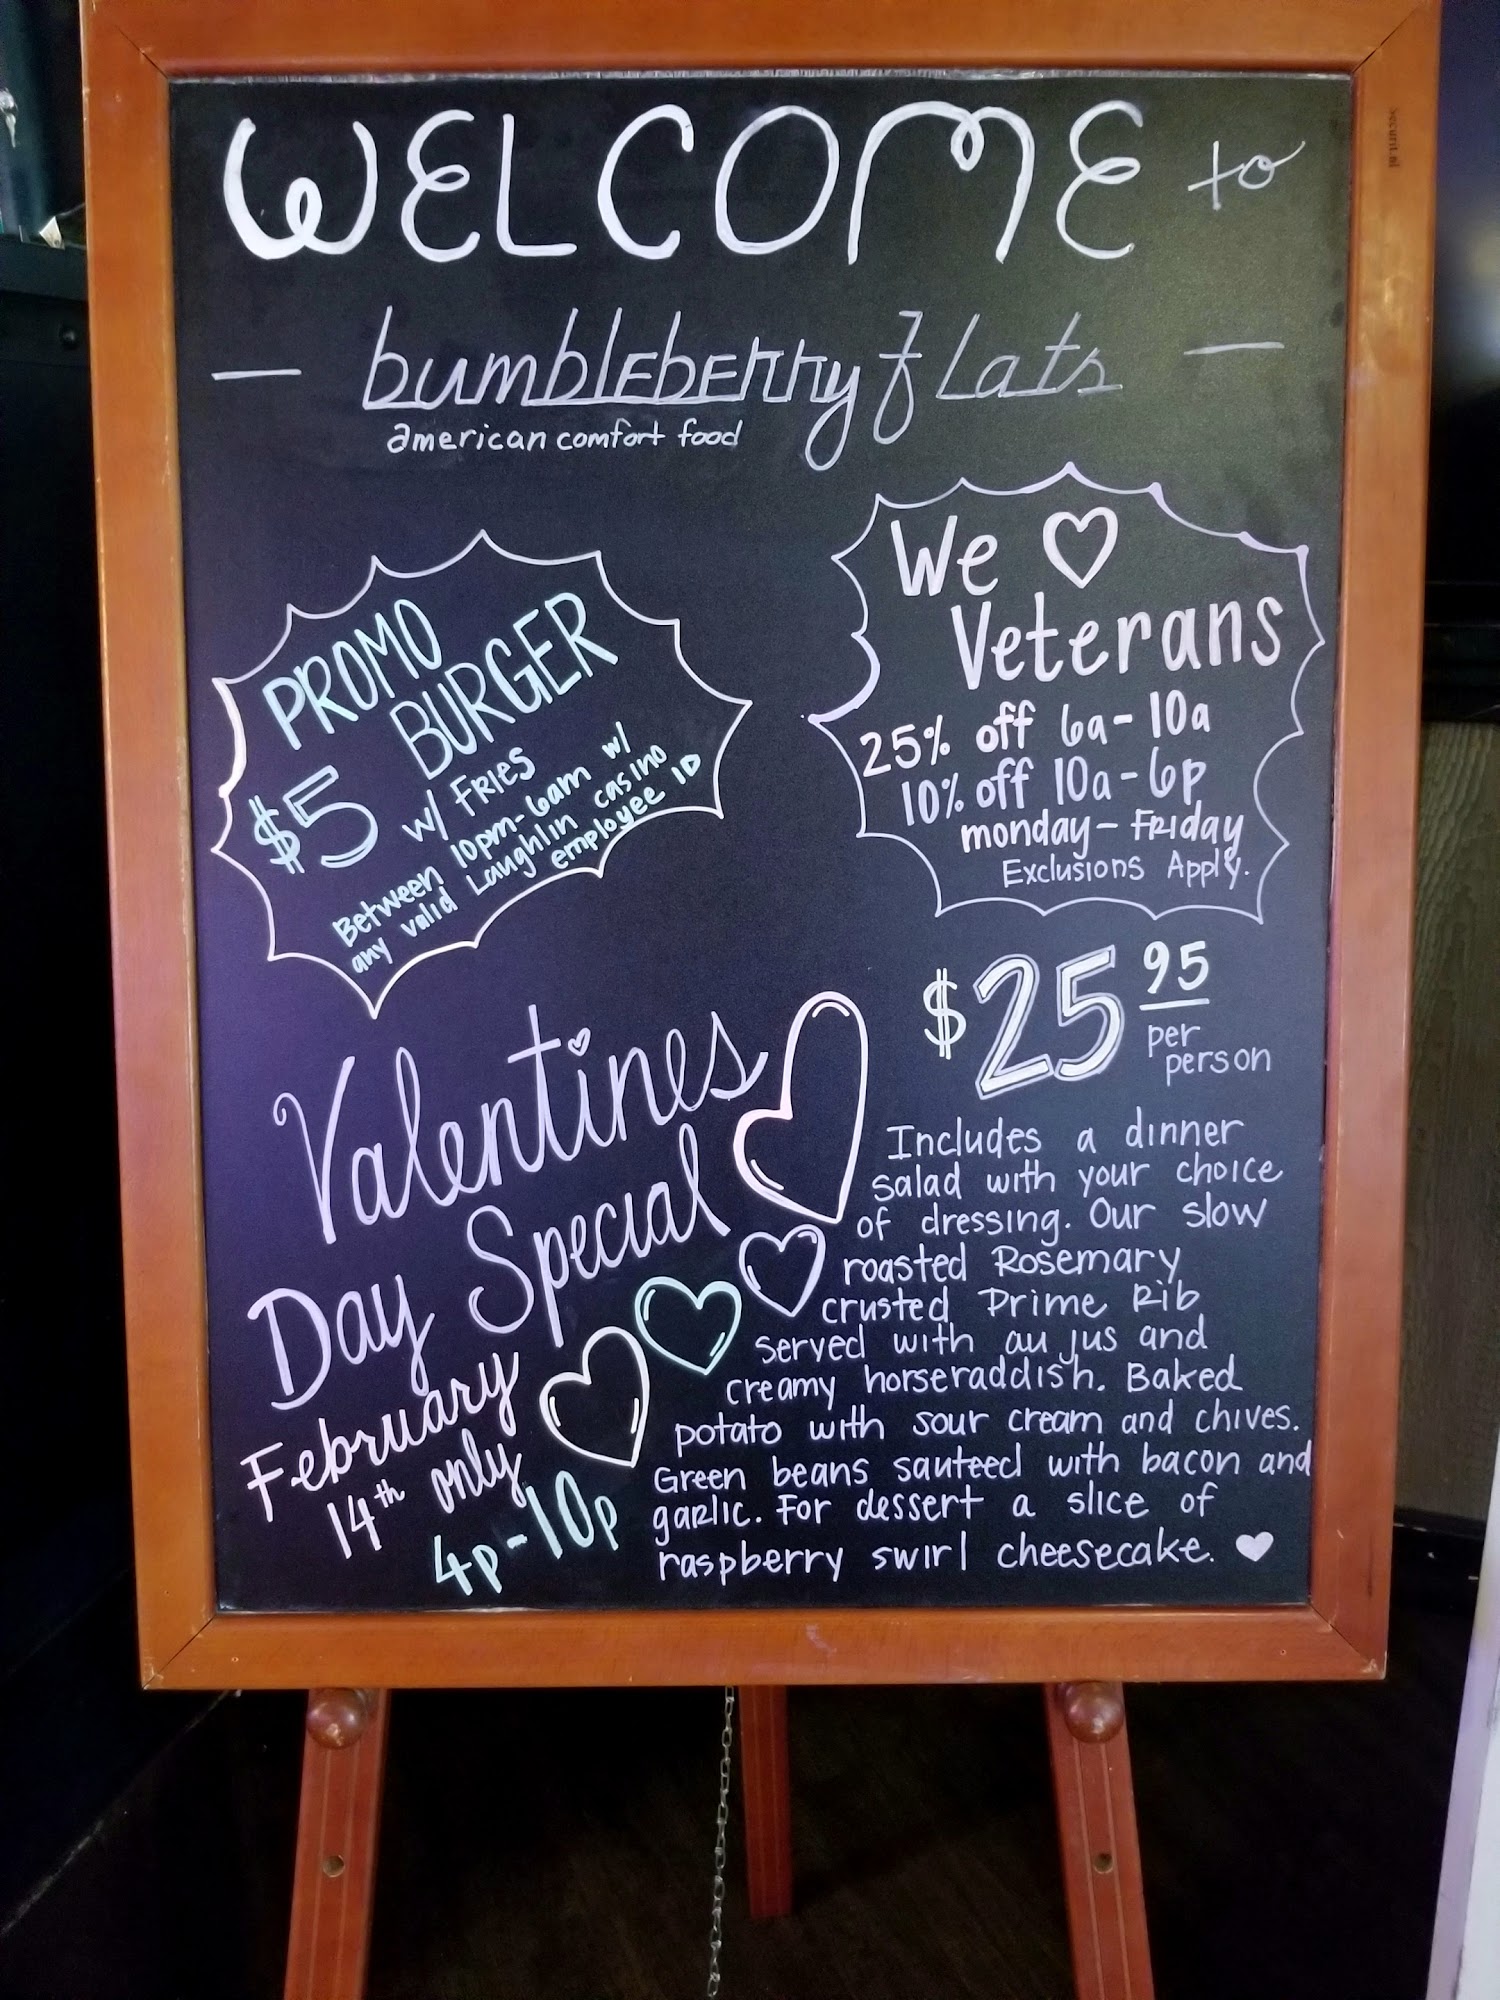 WELCOME to
— bumbleberry flats —
american comfort food
PROMO
BURGER
$5 w/ FRIES
Between 10pm-6am w/
any valid Laughlin casino
employee ID
We ♡
Veterans
25% off 6a-10a
10% off 10a-6p
monday-Friday
Exclusions Apply.
Valentines
Day Special
February
14th only
4p-10p
$25 95
per
person
Includes a dinner
salad with your choice
of dressing. Our slow
roasted Rosemary
crusted Prime Rib
served with au jus and
creamy horseraddish. Baked
potato with sour cream and chives.
Green beans sauteed with bacon and
garlic. For dessert a slice of
raspberry swirl cheesecake. ♥